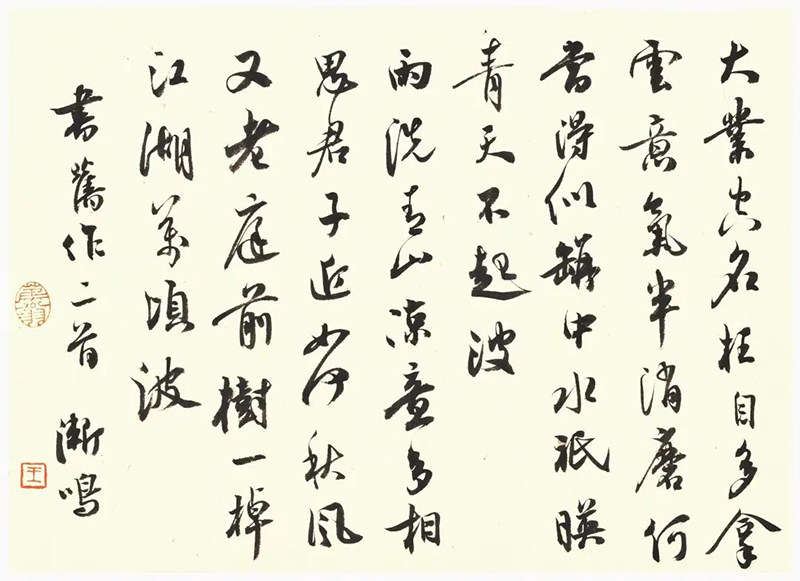 大業空名枉自多拿
雲意氣半消磨何
當得似罇中水祇暎
青天不起波
雨洗青山涼意多相
思君子近如何秋風
又老庭前樹一棹
江湖萬頃波
書舊作二首 漸鳴
王